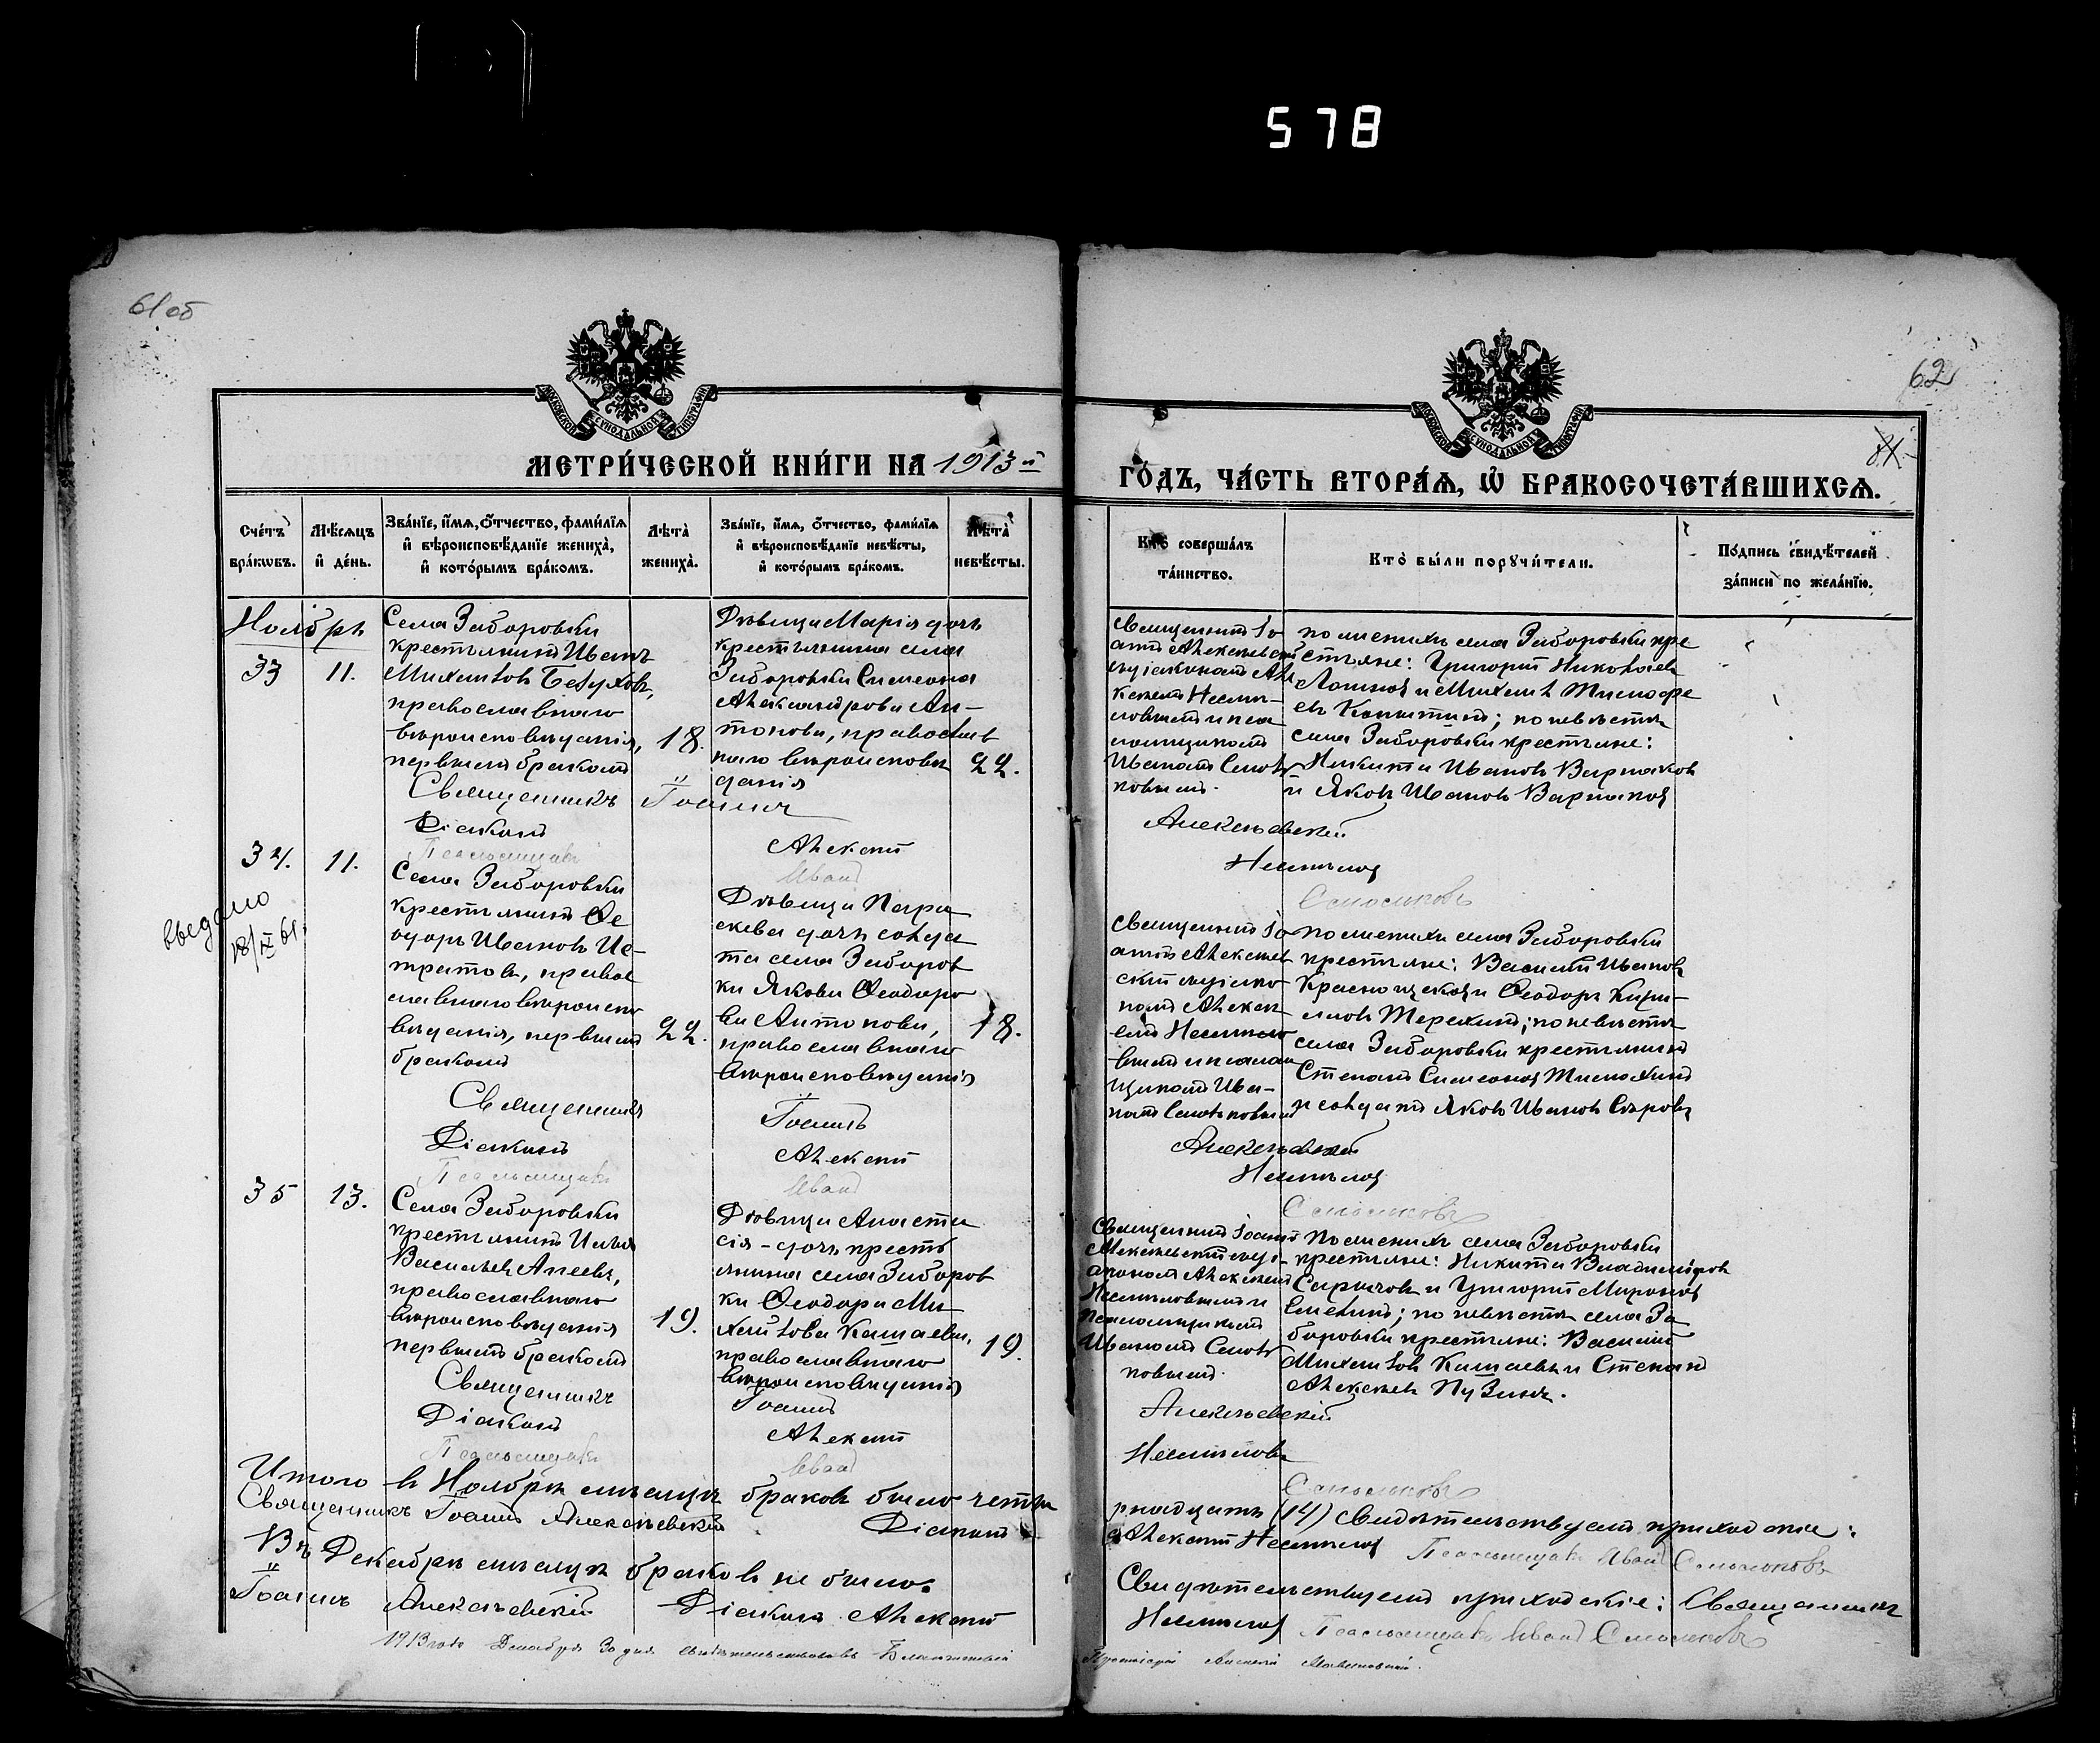 578
61 об
62
81.
МОСКОВСКОЙ СѴНОДАЛЬНОЙ ТИПОГРАФІИ
МОСКОВСКОЙ СѴНОДАЛЬНОЙ ТИПОГРАФІИ
МЕТРИ́ЧЕСКОЙ КНИ́ГИ НА 1913й
ГО́ДЪ, ЧА́СТЬ ВТОРА́Ѧ, Ѡ҆ БРАКОСОЧЕТА́ВШИХСѦ.
Сче́тъ
бра́кѡвъ.
Мѣ́сѧцъ
и҆ де́нь.
Зва́нїе, и҆́мѧ, ѻ҆́тчество, фами́лїѧ
и҆ вѣроисповѣ́данїе жениха̀,
и҆ кото́рымъ бра́комъ.
Лѣ́та
жениха̀.
Зва́нїе, и҆́мѧ, ѻ҆́тчество, фами́лїѧ
и҆ вѣроисповѣ́данїе невѣ́сты,
и҆ кото́рымъ бра́комъ.
Лѣ́та
невѣ́сты.
Кто̀ соверша́лъ
та́инство.
Кто̀ бы́ли порꙋчи́тели.
По́дпись свидѣ́телей
за́писи по жела́нїю.
Ноябрь
33
11.
Села Заборовки
крестьянинъ Иванъ
Михаиловъ
православнаго
вѣроисповѣданія,
первымъ бракомъ
18.
Дѣвица Марія дочь
крестьянина села
Заборовки Симеона
Александрова Ан-
тонова, православ
наго вѣроисповѣ
данія
22.
Священникъ Іо
аннъ Алексѣевскій
съ діакономъ Але
ксѣемъ Несмѣ-
ловымъ и пса
ломщикомъ
Иваномъ Смоль
ковымъ.
по женихѣ села Заборовки кре
стьяне: Григорій Николаевъ
Логиновъ и Михаилъ Тимофе
евъ Капитинъ; по невѣстѣ
села Заборовки крестьяне:
Никита Ивановъ Варнаковъ
и Яковъ Ивановъ Варнаковъ
Священникъ Іоаннъ Алексѣевскій
Діаконъ Алексѣй Несмѣловъ
Псаломщикъ Иванъ Смольковъ
34.
11.
введено
18/IX 61.
Села Заборовки
крестьянинъ Ѳе
одоръ Ивановъ Иг-
натовъ, правос
лавнаго вѣроиспо
вѣданія, первымъ
бракомъ
22.
Дѣвица Пара
скева дочь солда
та села Заборов
ки Якова Ѳеодоро
ва Антонова,
православнаго
вѣроисповѣданія
18.
Священникъ Іо
аннъ Алексѣев
скій съ діако
номъ Алексѣ
емъ Несмѣло
вымъ и псалом
щикомъ Ива-
номъ Смольковымъ
по женихѣ села Заборовки
крестьяне: Василій Ивановъ
и Ѳеодоръ Кири-
ловъ Терехинъ; по невѣстѣ
села Заборовки крестьянинъ
Степанъ Симеоновъ Тимохинъ
и солдатъ Яковъ Ивановъ Сѣровъ
Священникъ Іоаннъ Алексѣевскій
Діаконъ Алексѣй Несмѣловъ
Псаломщикъ Иванъ Смольковъ
35
13.
Села Заборовки
крестьянинъ Илья
Васильевъ Агеевъ,
православнаго
вѣроисповѣданія
первымъ бракомъ
19.
Дѣвица Анаста
сія - дочь кресть
янина села Заборов
ки Ѳеодора Ми
хаилова Кашаева,
православнаго
вѣроисповѣданія
19.
Священникъ Іоаннъ
Алексѣевскій съ ді-
акономъ Алексѣемъ
Несмѣловымъ и
псаломщикомъ
Иваномъ Смоль
ковымъ.
По женихѣ села Заборовки
крестьяне: Никита Владиміровъ
и Григорій Мироновъ
по невѣстѣ села За
боровки крестьяне: Василій
Михаиловъ Кашаевъ и Степанъ
Алексѣевъ Пузинъ.
Священникъ Іоаннъ Алексѣевскій
Діаконъ Алексѣй Несмѣловъ
Псаломщикъ Иванъ Смольковъ
Итого въ Ноябрѣ мѣсяцѣ браковъ было четы
рнадцать (14) Свидѣтельствуемъ приходскіе:
Священникъ Іоаннъ Алексѣевскій Діаконъ
Алексѣй Несмѣловъ Псаломщикъ Иванъ Смольковъ
Въ Декабрѣ мѣсяцѣ браковъ не было.
Свидѣтельствуемъ приходскіе: Священникъ
Іоаннъ Алексѣевскій Діаконъ Алексѣй
Несмѣловъ Псаломщикъ Иванъ Смольковъ
1913 года Декабря 30 дня свидѣтельствовалъ Благочинный
Протоіерей